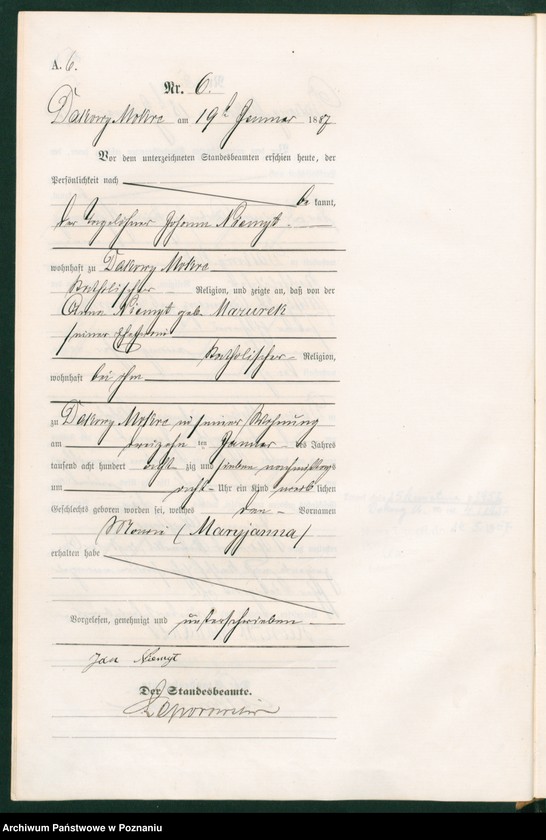 A. 6.
Nr. 6.
Dakowy Mokre am 19t Januar 1887
Vor dem unterzeichneten Standesbeamten erschien heute, der
Persönlichkeit nach
be kannt,
der Tagelöhner Johann Niemyt
wohnhaft zu Dakowy Mokre
katholischer Religion, und zeigte an, daß von der
Anna Niemyt geb. Mazurek
seiner Ehefrau
katholischer Religion,
wohnhaft bei ihm
zu Dakowy Mokre in seiner Wohnung
am dreizehn ten Januar des Jahres
tausend acht hundert acht zig und sieben nachmittags
um acht Uhr ein Kind weib lichen
Geschlechts geboren worden sei, welches den Vornamen
(Maryjanna)
erhalten habe
Vorgelesen, genehmigt und unterschrieben
Jan Niemyt
Der Standesbeamte.
Archiwum Państwowe w Poznaniu